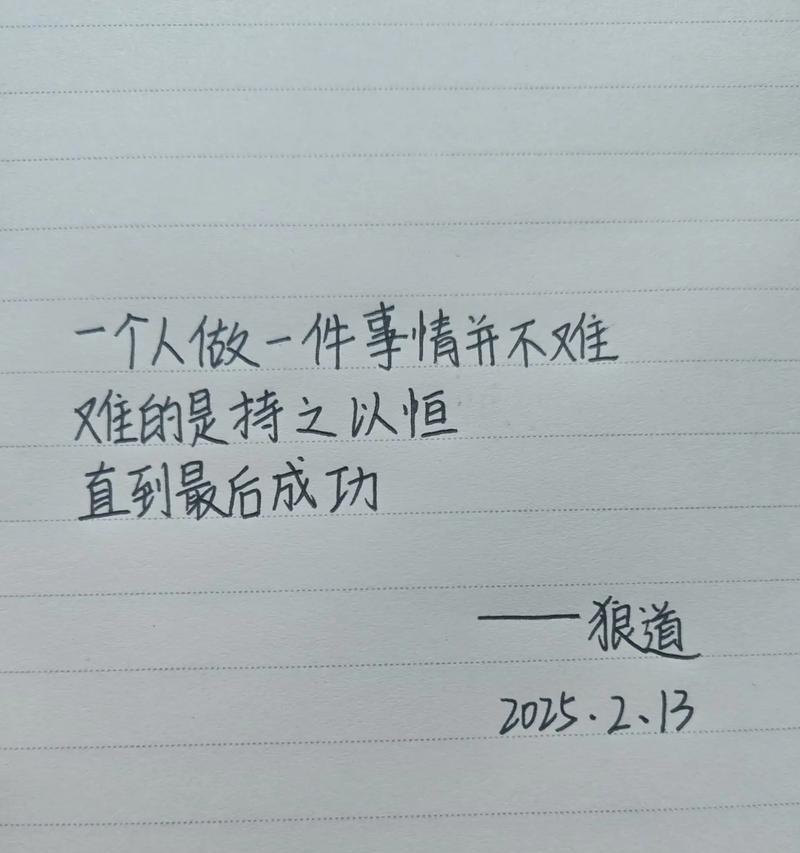 一个人做一件事情并不难
难的是持之以恒
直到最后成功
——狼道
2025.2.13